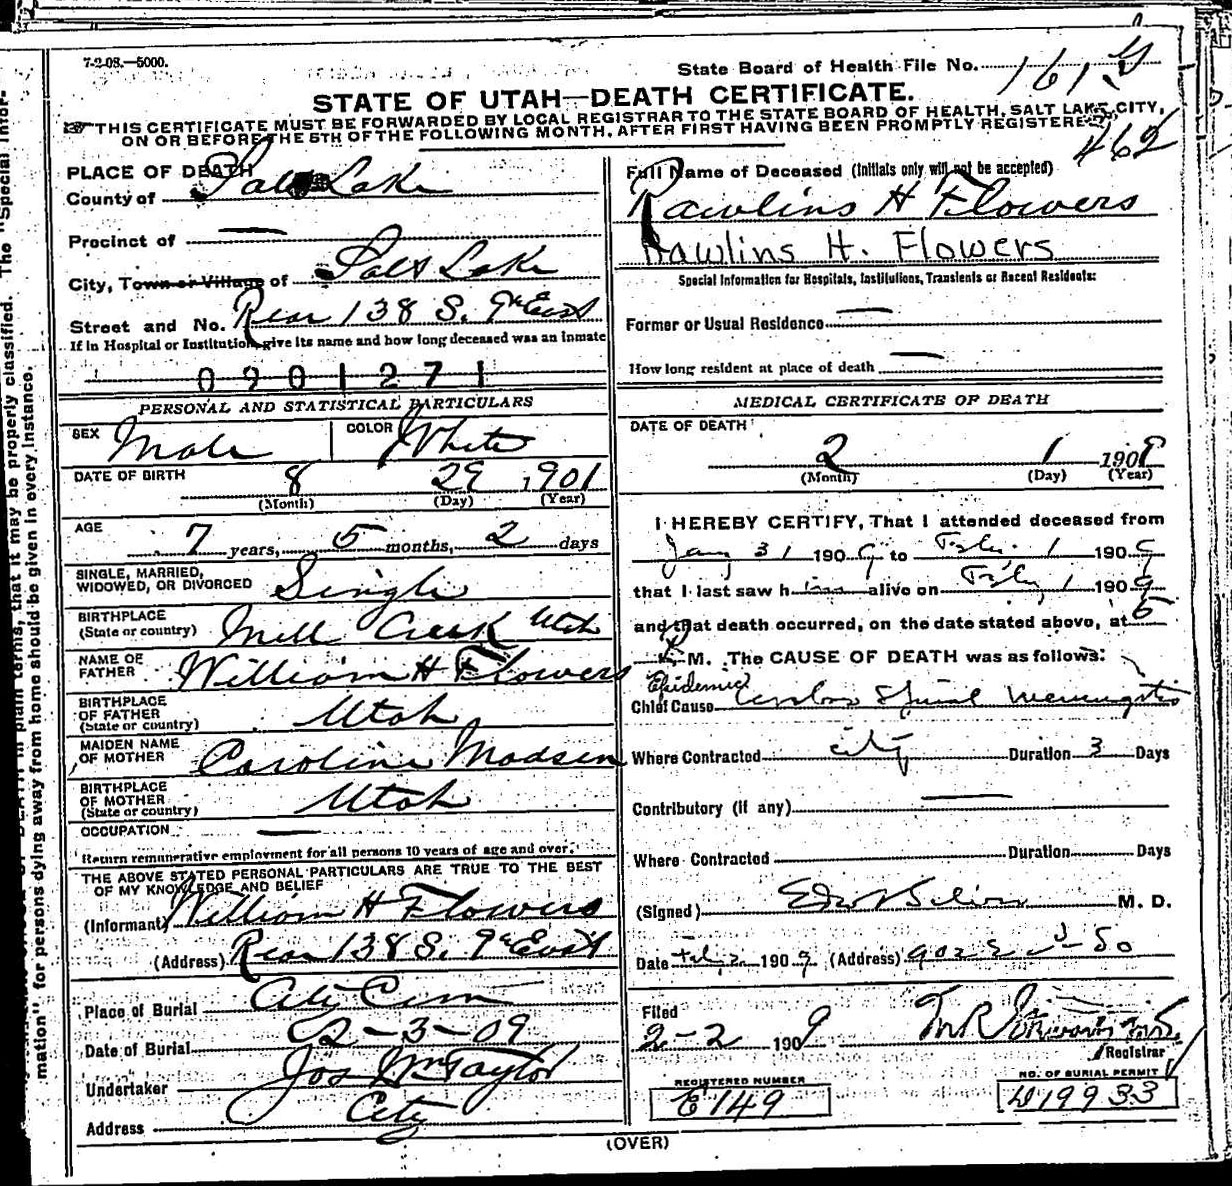 7-2-08.—5000.
State Board of Health File No. 161
STATE OF UTAH—DEATH CERTIFICATE.
THIS CERTIFICATE MUST BE FORWARDED BY LOCAL REGISTRAR TO THE STATE BOARD OF HEALTH, SALT LAKE CITY,
ON OR BEFORE THE 5TH OF THE FOLLOWING MONTH, AFTER FIRST HAVING BEEN PROMPTLY REGISTERED.
462
PLACE OF DEATH
County of Salt Lake
Precinct of —
City, Town or Village of Salt Lake
Street and No. Rear 138 S. 9th East
If in Hospital or Institution, give its name and how long deceased was an inmate
0901271
PERSONAL AND STATISTICAL PARTICULARS
SEX Male COLOR White
DATE OF BIRTH 8 29 1901
(Month) (Day) (Year)
AGE 7 years, 5 months, 2 days
SINGLE, MARRIED,
WIDOWED, OR DIVORCED Single
BIRTHPLACE
(State or country) Mill Creek Utah
NAME OF
FATHER William H Flowers
BIRTHPLACE
OF FATHER
(State or country) Utah
MAIDEN NAME
OF MOTHER Caroline Madsen
BIRTHPLACE
OF MOTHER
(State or country) Utah
OCCUPATION —
Return remunerative employment for all persons 10 years of age and over.
THE ABOVE STATED PERSONAL PARTICULARS ARE TRUE TO THE BEST
OF MY KNOWLEDGE AND BELIEF
(Informant) William H Flowers
(Address) Rear 138 S. 9th East
Place of Burial City Cem
Date of Burial 2-3-09
Undertaker Jos Wm Taylor
Address City
Full Name of Deceased (Initials only will not be accepted)
Rawlins H Flowers
Rawlins H. Flowers
Special Information for Hospitals, Institutions, Transients or Recent Residents:
Former or Usual Residence —
How long resident at place of death —
MEDICAL CERTIFICATE OF DEATH
DATE OF DEATH
2 1 1909
(Month) (Day) (Year)
I HEREBY CERTIFY, That I attended deceased from
Jany 31 1909 to Feby. 1 1909
that I last saw him alive on Feby 1 1909
and that death occurred, on the date stated above, at 5
P M. The CAUSE OF DEATH was as follows:
Epidemic
Chief Cause Cerebro Spinal Meningitis
Where Contracted city Duration 3 Days
Contributory (if any) —
Where Contracted Duration Days
(Signed) M. D.
Date Feb, 2 1909 (Address) 902 E
Filed
2-2 1909
Registrar
REGISTERED NUMBER
E 149
NO. OF BURIAL PERMIT
D19933
(OVER)
mation" for persons dying away from home should be given in every instance.
DEATH in plain terms, that it may be properly classified. The "Special Infor-